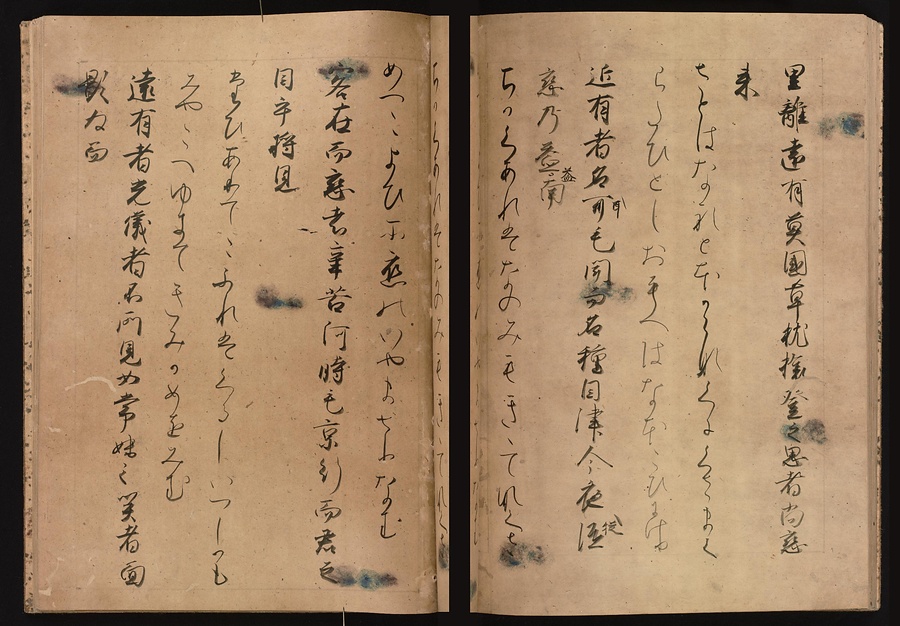 里離遠有莫國草枕旅登之思者尚戀
来
さとはなれとほからなくにくさまく
らたひとしおもへはなほこひ
近有者名耳毛聞而名種目津今夜
戀乃益益南
ちかくあれはなのみもきゝてなくさ
めつこよひいやまさりなむ
客在而戀者辛苦何時毛京行而君之
目乎将見
たひにありてこふれはくるしいつしかも
みやこへゆきてきみかめをみむ
遠有者光儀者不所見如常妹之咲者面
影為而